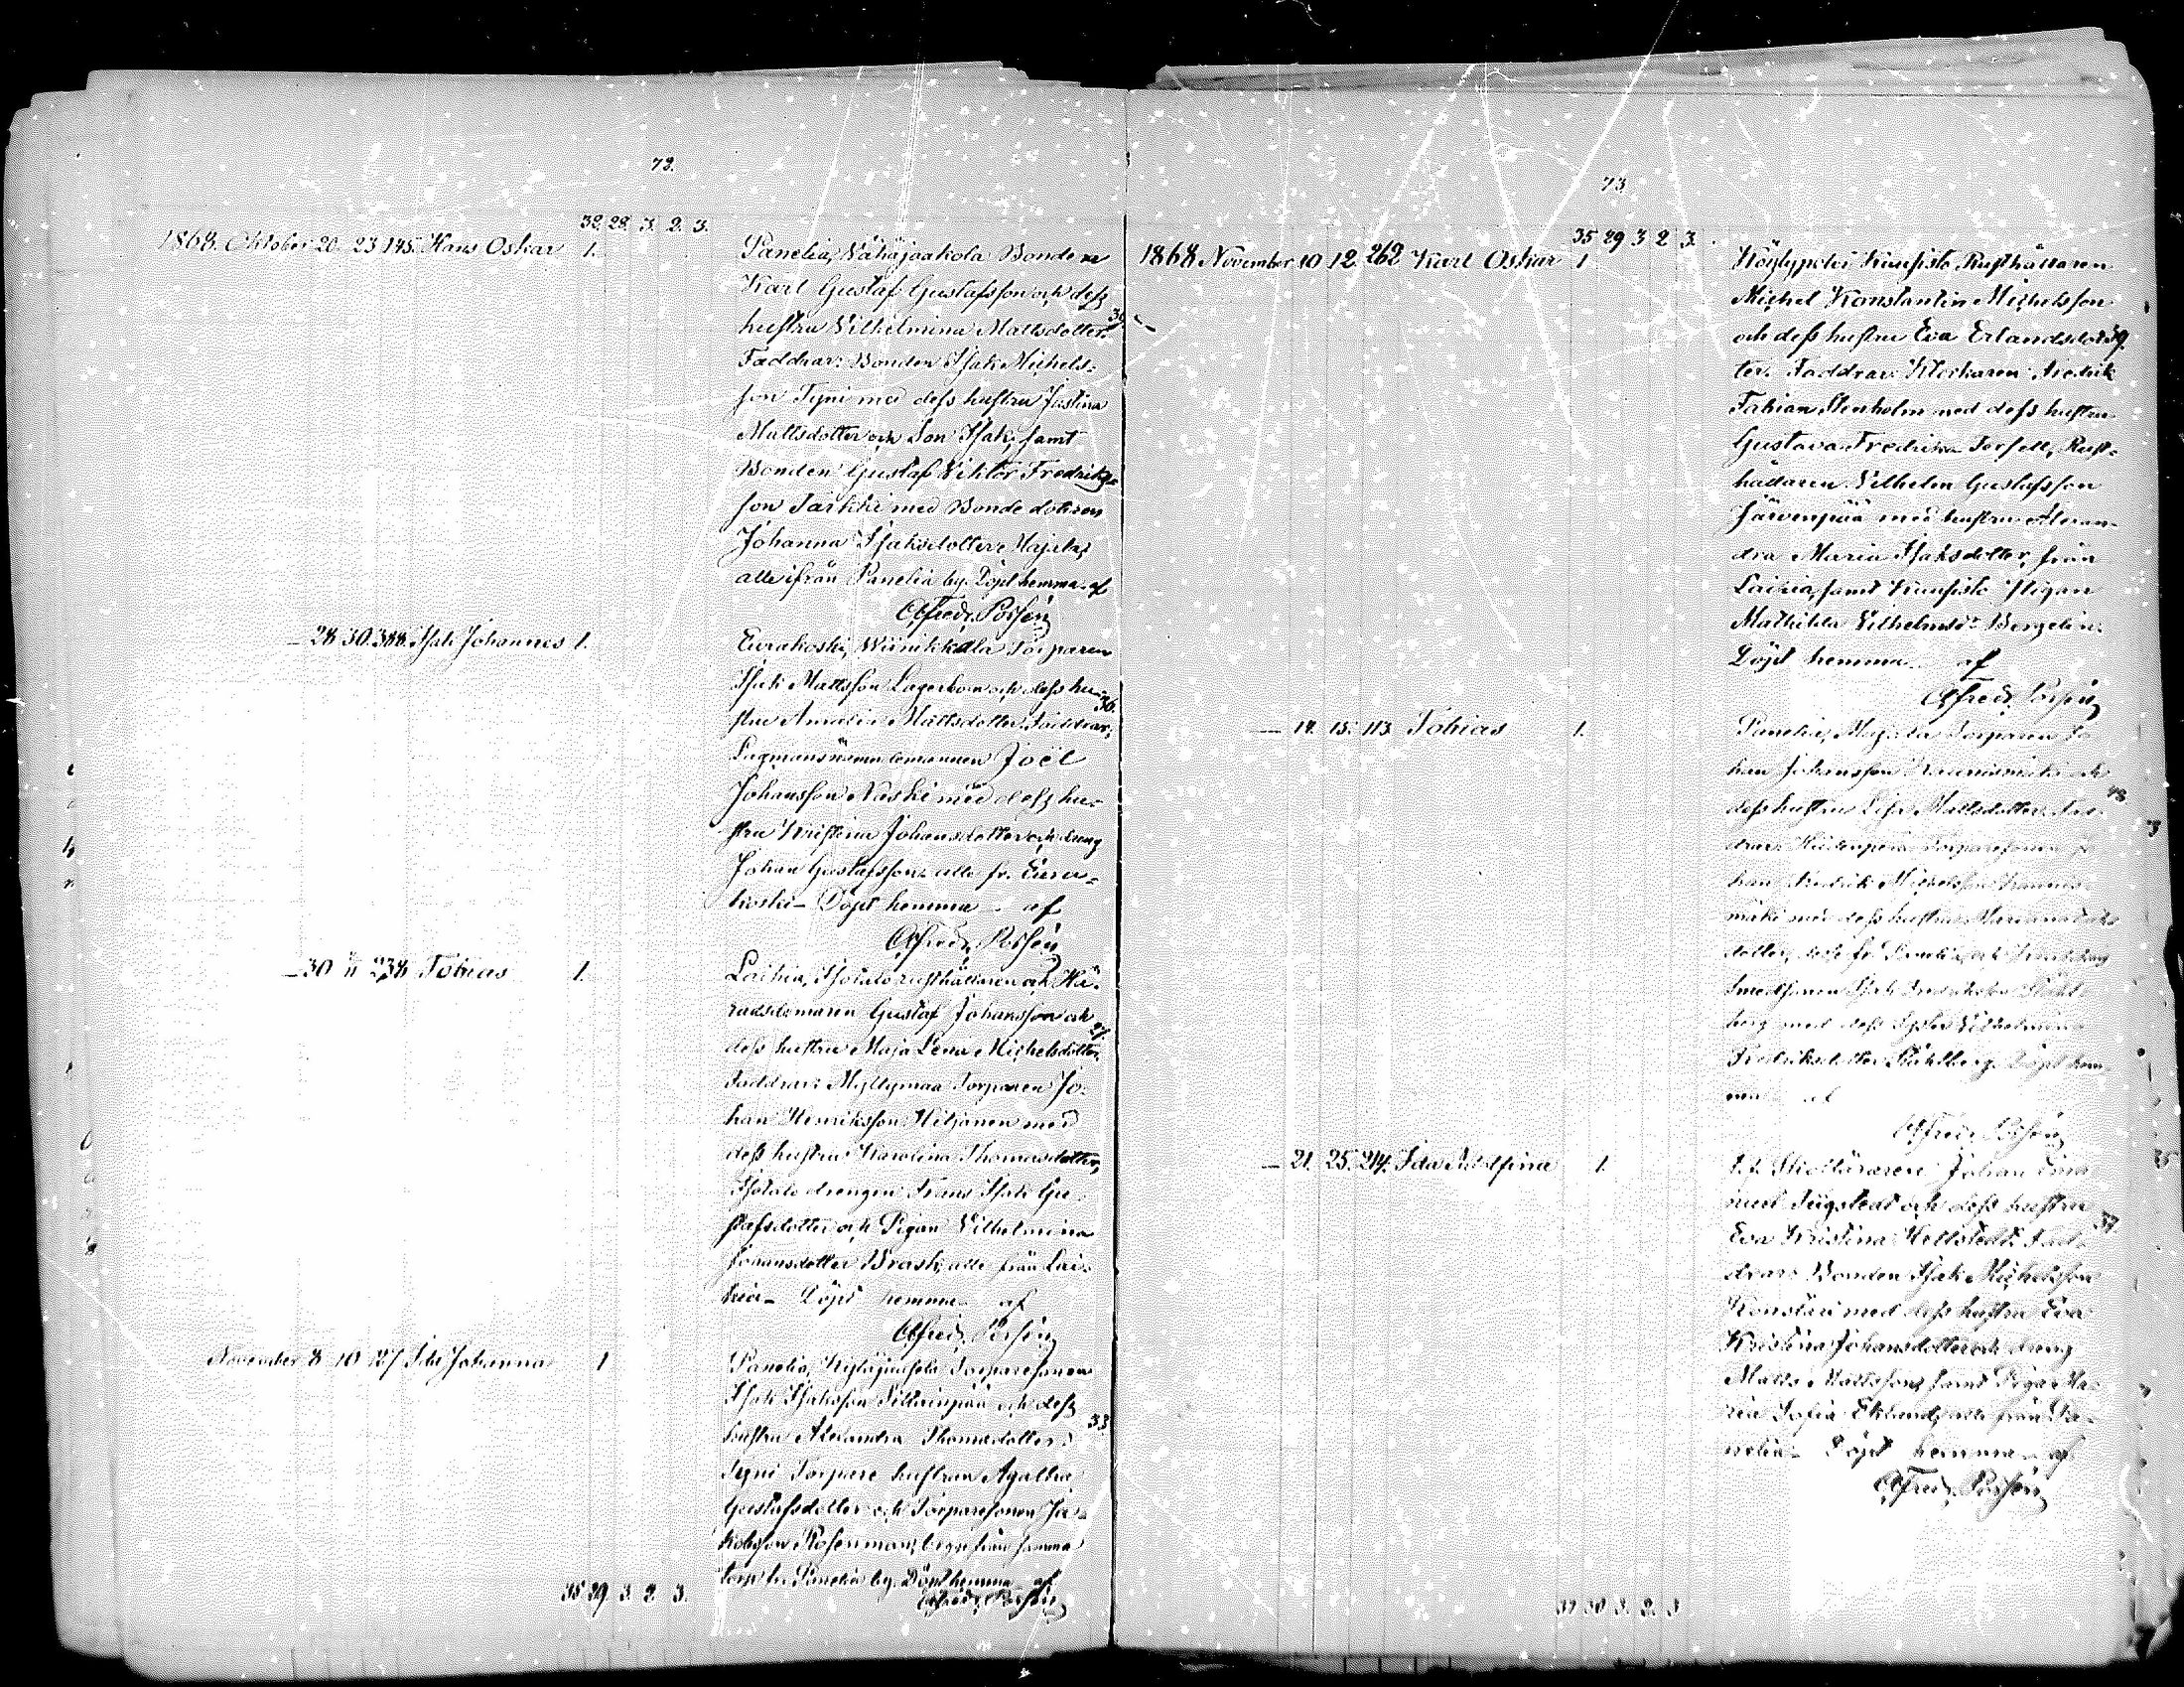 72.
32. 28. 3. 2. 3.
1868. Oktober 20. 23. 145. Hans Oskar 1.
Panelia, Vähäjaakola Bonden
Karl Gustaf Gustafsson och dess
hustru Vilhelmina Mattsdotter.
Faddrar: Bonden Isak Michels-
son Tyni med dess hustru Justina
Mattsdotter och Son Isak, samt
Bonden Gustaf Viktor Fredriks-
son Jarkki med Bonde dottren
Johanna Isaksdotter Majala,
alle ifrån Panelia by. Döpt hemma af
Alfred Possén
— 28. 30. 388. Isak Johannes 1.
Eurakoski, Torparen
Isak Mattsson Lagerbom och dess hu- 36.
stru Amalia Mattsdotter. Faddrar:
Lagmansnämndemannen Joël
Johansson Naski med dess hu-
stru Kristina Johansdotter och dreng
Johan Gustafsson, alle fr. Eura-
koski - Döpt hemma - af
Alfred Possén
— 30. 238. Tobias 1.
Laihia, Isotalo rusthållaren och Hä-
radsdomaren Gustaf Johansson och
dess hustru Maja Lena Michelsdotter.
Faddrar: Myllymaa Torparen Jo-
han Henriksson Hiljanen med
dess hustru Karolina Thomasdotter,
Isotalo drengen Frans Isak Gu-
stafsdotter och Pigan Vilhelmina
Johansdotter Brask, alle från Lai-
hia - Döpt hemma - af
Alfred Possén
November 8. 10. Ida Johanna 1
Panelia, Torparesonen
Isak Isaksson och dess
hustru Alexandra Thomasdotter. 33.
Tyni Torpare hustrun Agatha
Gustafsdotter och Torparesonen Ja-
kobsson Rosenman, begge från samma
Panelia by. Döpt hemma af
Alfred Possén
35. 29. 3. 2. 3.
73.
35 29 3 2 3.
1868 November 10 12. 262 Karl Oskar 1
Kuusisto Rusthållaren
Michel Konstantin Michelsson
och dess hustru Eva Erlandsdot- 39.
ter. Faddrar: Klockaren Fredrik
Fabian Stenholm med dess hustru
Gustava Fredrika Rust-
hållaren Vilhelm Gustafsson
Järvenpää med hustru Alexan-
dra Maria Isaksdotter, från
Laihia, samt Kuusisto Pigan
Mathilda Vilhelmsdr Bergelin.
Döpt hemma af
Alfred Possén
— 14. 15. 113. Tobias 1.
Panelia, Majala Torparen Jo-
han Johansson och
dess hustru Lisa Mattsdotter. Fad- 43
drar: Torparesonen Jo-
han Fredrik Michelsson
mäki med dess hustru
dotter, fr. Panelia, och
Smedsonen Isak Fredriksson Ståhl-
berg med dess Syster Vilhelmina
Fredriksdotter Ståhlberg. Döpt hem-
ma af
Alfred Possén
— 21. 25. 214. Ida Adolfina 1.
Johan Ema-
nuel och dess hustru
Eva Kristina Fad- 37.
drar: Bonden Isak Michelsson
Konstari med dess hustru Eva
Kristina Johansdotter och dreng
Matts Mattsson, samt Piga Ma-
ria Sofia Eklund, alle från Pa-
nelia - Döpt hemma - af
Alfred Possén
37 30 3. 2. 3